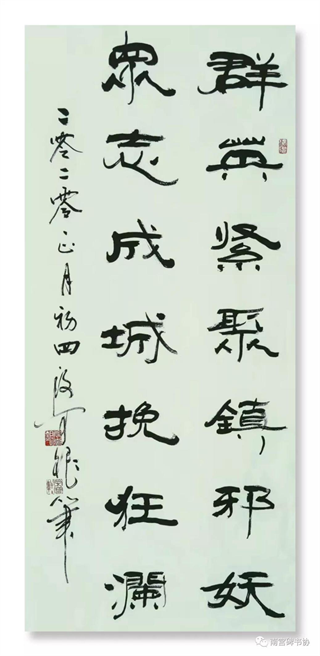 群英紧聚鎮邪妖
眾志成城挽狂瀾
二零二零正月初四
南宫碑书协